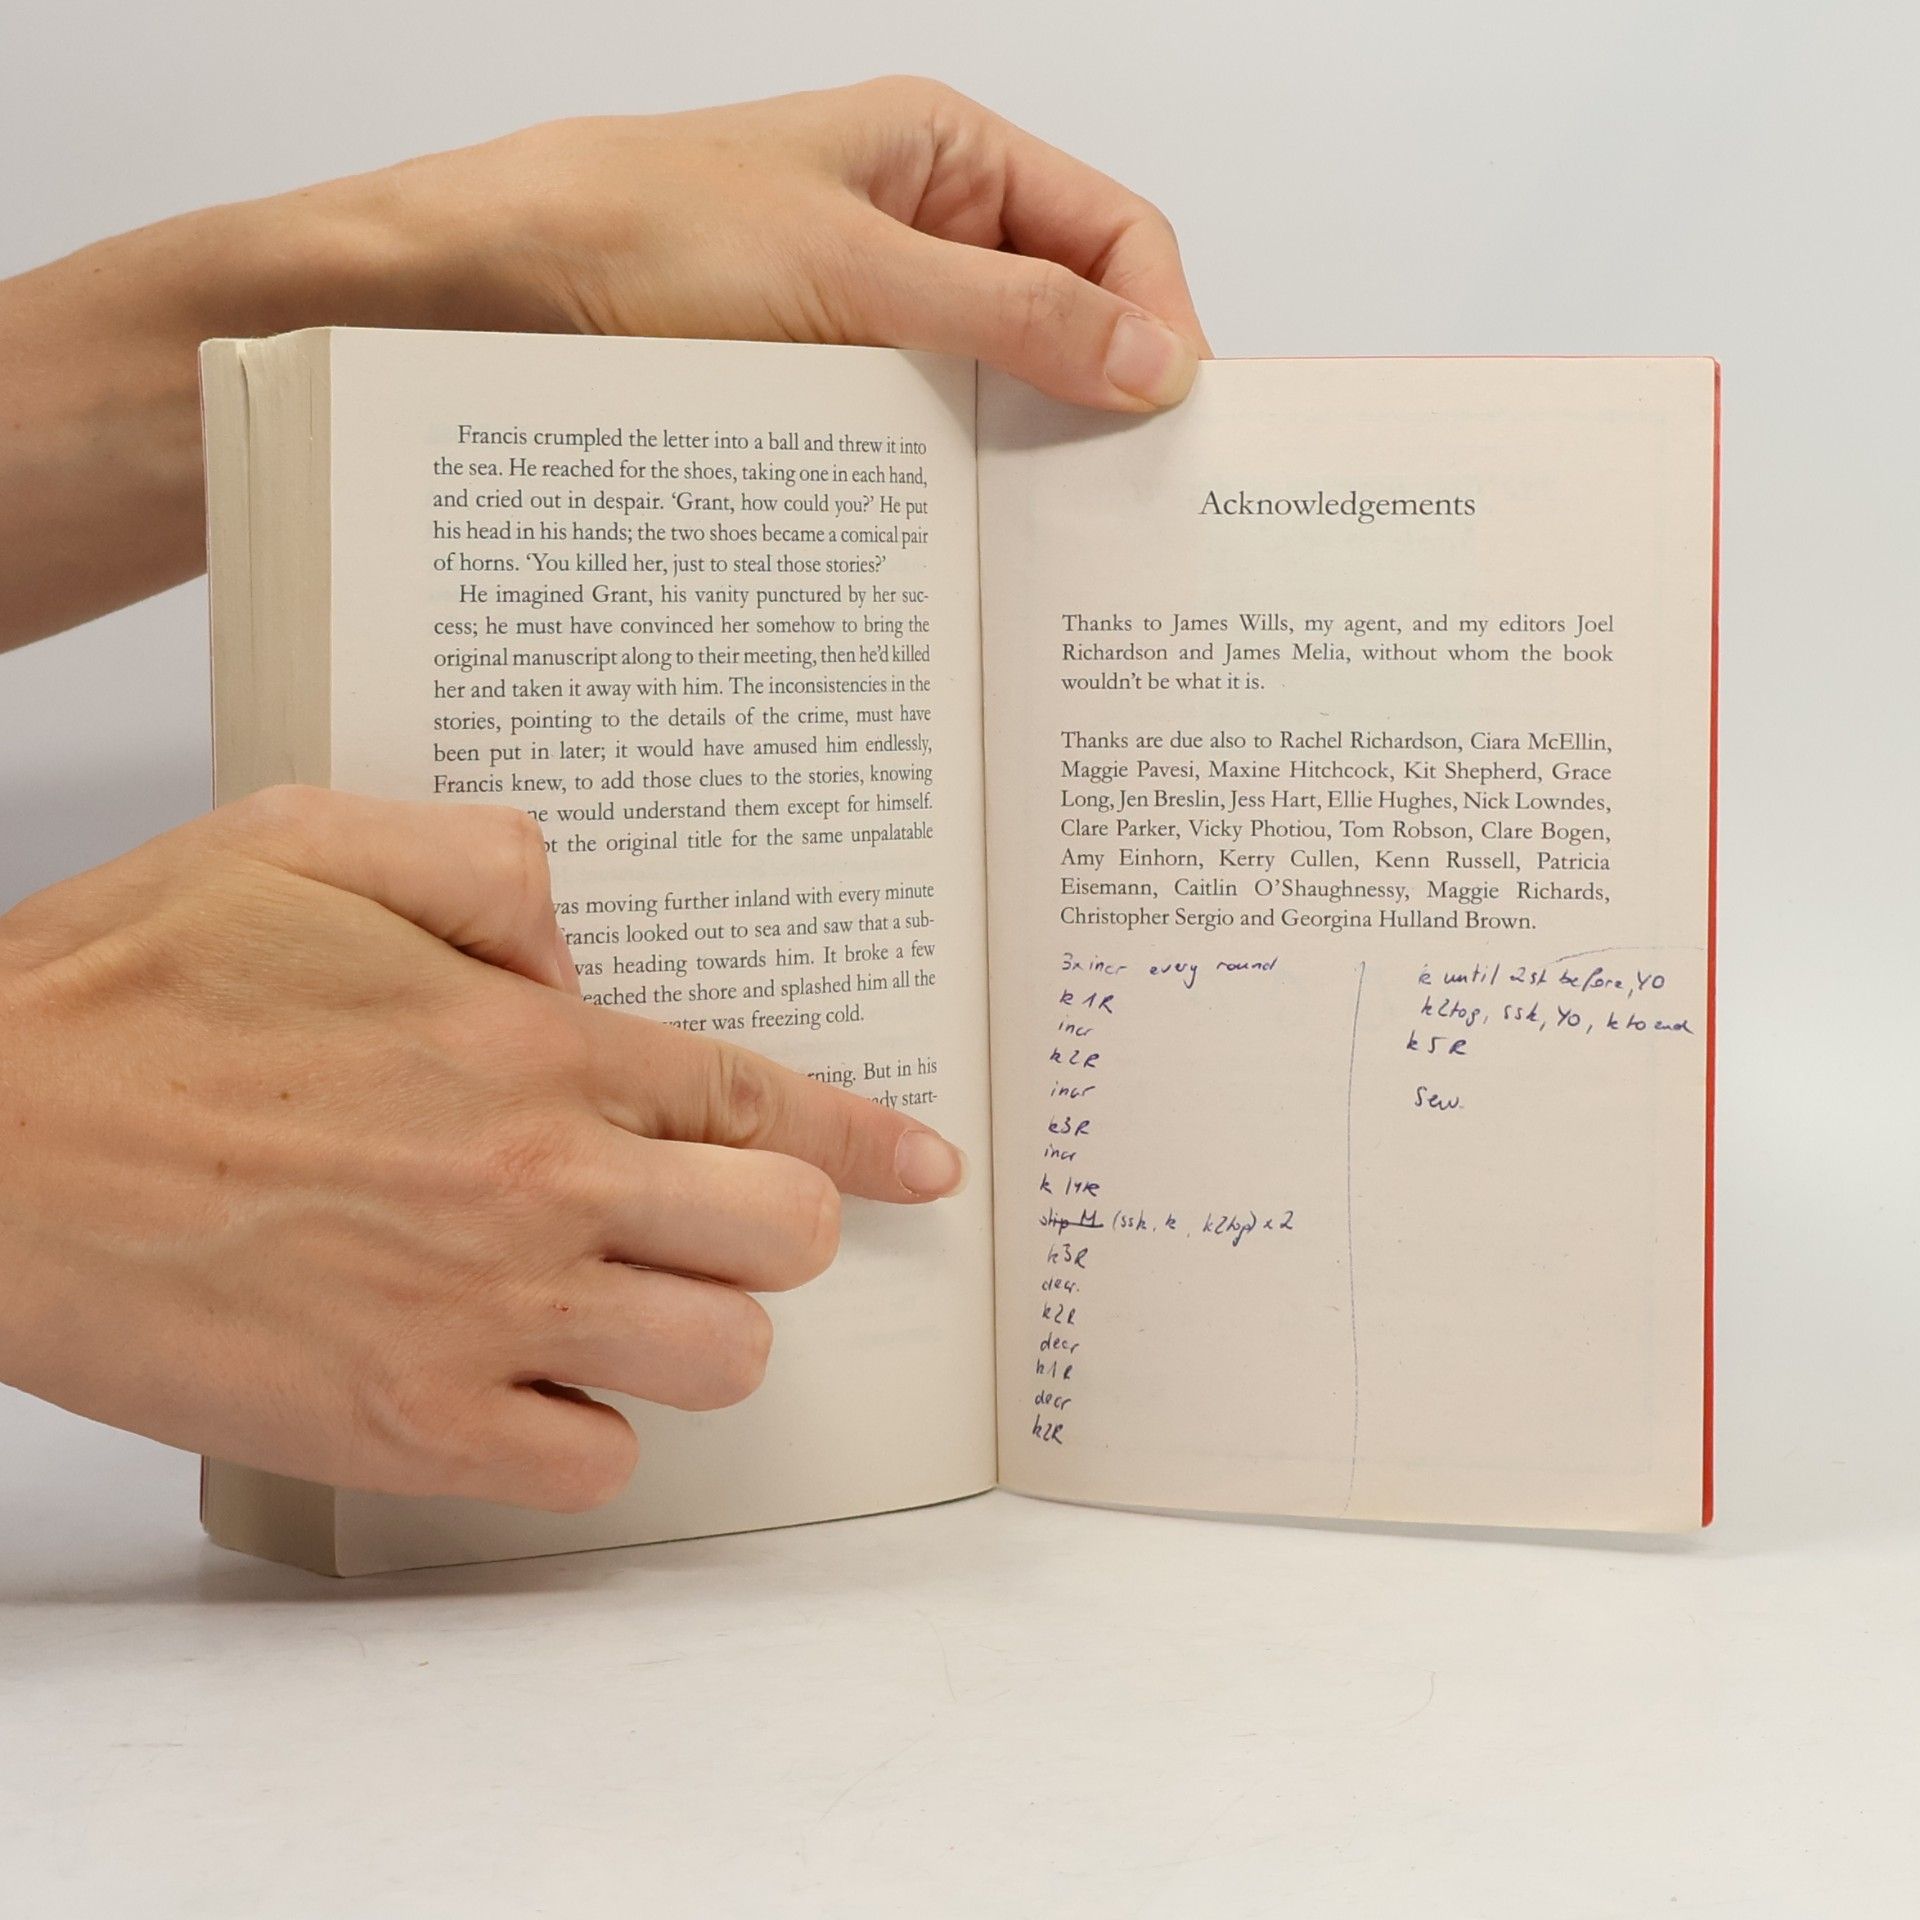 Francis crumpled the letter into a ball and threw it into
the sea. He reached for the shoes, taking one in each hand,
and cried out in despair. ‘Grant, how could you?’ He put
his head in his hands; the two shoes became a comical pair
of horns. ‘You killed her, just to steal those stories?’
He imagined Grant, his vanity punctured by her suc-
cess; he must have convinced her somehow to bring the
original manuscript along to their meeting, then he’d killed
her and taken it away with him. The inconsistencies in the
stories, pointing to the details of the crime, must have
been put in later; it would have amused him endlessly,
Francis knew, to add those clues to the stories, knowing
would understand them except for himself.
the original title for the same unpalatable
was moving further inland with every minute
Francis looked out to sea and saw that a sub-
was heading towards him. It broke a few
reached the shore and splashed him all the
water was freezing cold.
But in his
start-
Acknowledgements
Thanks to James Wills, my agent, and my editors Joel
Richardson and James Melia, without whom the book
wouldn’t be what it is.
Thanks are due also to Rachel Richardson, Ciara McEllin,
Maggie Pavesi, Maxine Hitchcock, Kit Shepherd, Grace
Long, Jen Breslin, Jess Hart, Ellie Hughes, Nick Lowndes,
Clare Parker, Vicky Photiou, Tom Robson, Clare Bogen,
Amy Einhorn, Kerry Cullen, Kenn Russell, Patricia
Eisemann, Caitlin O’Shaughnessy, Maggie Richards,
Christopher Sergio and Georgina Hulland Brown.
3x incr every round
k 1R
incr
k2R
incr
k3R
incr
k
slip M (ssk, k, k2tog) x 2
k3R
decr.
k2R
decr
k1R
decr
k2R
k until 2st before, YO
k2tog, ssk, YO, k to end
k 5 R
Sew.